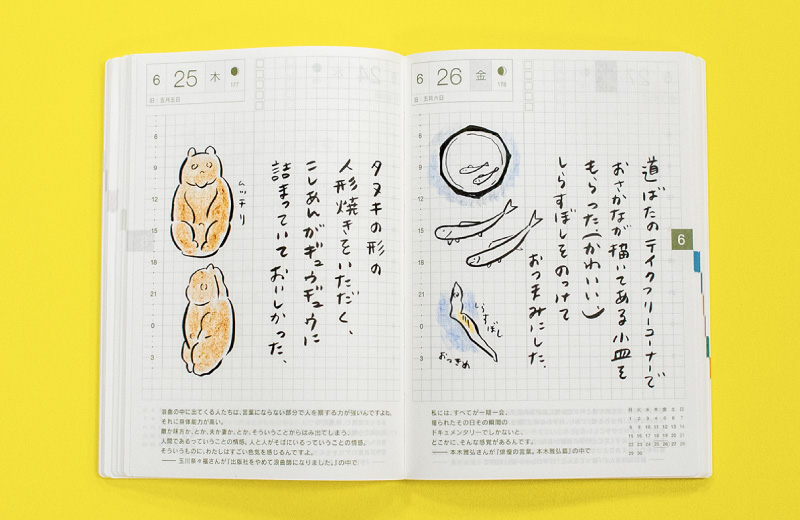 6 25 木
177
旧 五月五日
6
9
12
15
18
21
0
3
ムッチリ
タヌキの形の
人形焼きをいただく、
こしあんがギュウギュウに
詰まっていておいしかった、
浪曲の中に出てくる人たちは、言葉にならない部分で人を察する力が強いんですよね。
それに身体能力が高い。
敵か味方か、とか、夫か妻か、とか、そういうことからはみ出てしまう、
人間であるっていうことの情感。人と人がそばにいるっていうことの情感。
そういうものに、わたしはすごい色気を感じるんですよ。
── 玉川奈々福さんが『出版社をやめて浪曲師になりました。』の中で
6 26 金
178
旧 五月六日
6
9
12
15
18
21
0
3
道ばたのテイクフリーコーナーで
おさかなが描いてある小皿を
もらった、(かわいい、)
しらすぼしをのっけて
おつまみにした、
しらすぼし
おつきめ
6
私には、すべてが一期一会。
撮られたその日その瞬間の
ドキュメンタリーでしかないと、
どこかに、そんな感覚があるんです。
── 本木雅弘さんが『俳優の言葉。本木雅弘篇』の中で
月 火 水 木 金 土 日
1 2 3 4 5 6 7
8 9 10 11 12 13 14
15 16 17 18 19 20 21
22 23 24 25 26 27 28
29 30